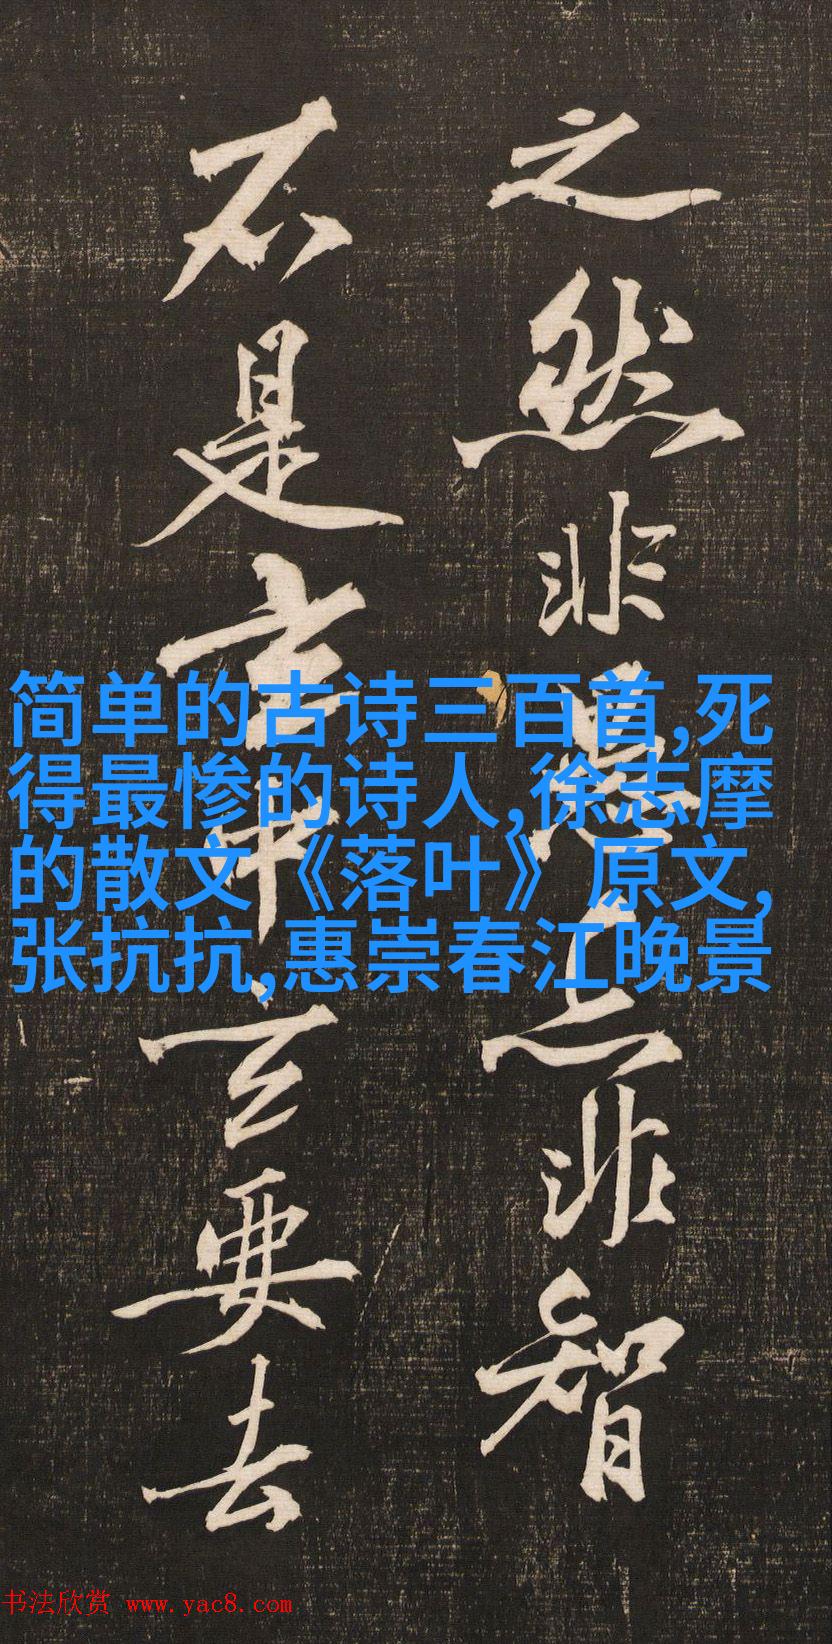 之然非愚非智
不是中要去
简单的古诗三百首,死
得最惨的诗人,徐志摩
的散文《落叶》原文,
张抗抗,惠崇春江晚景
书法欣赏 www.yac8.com